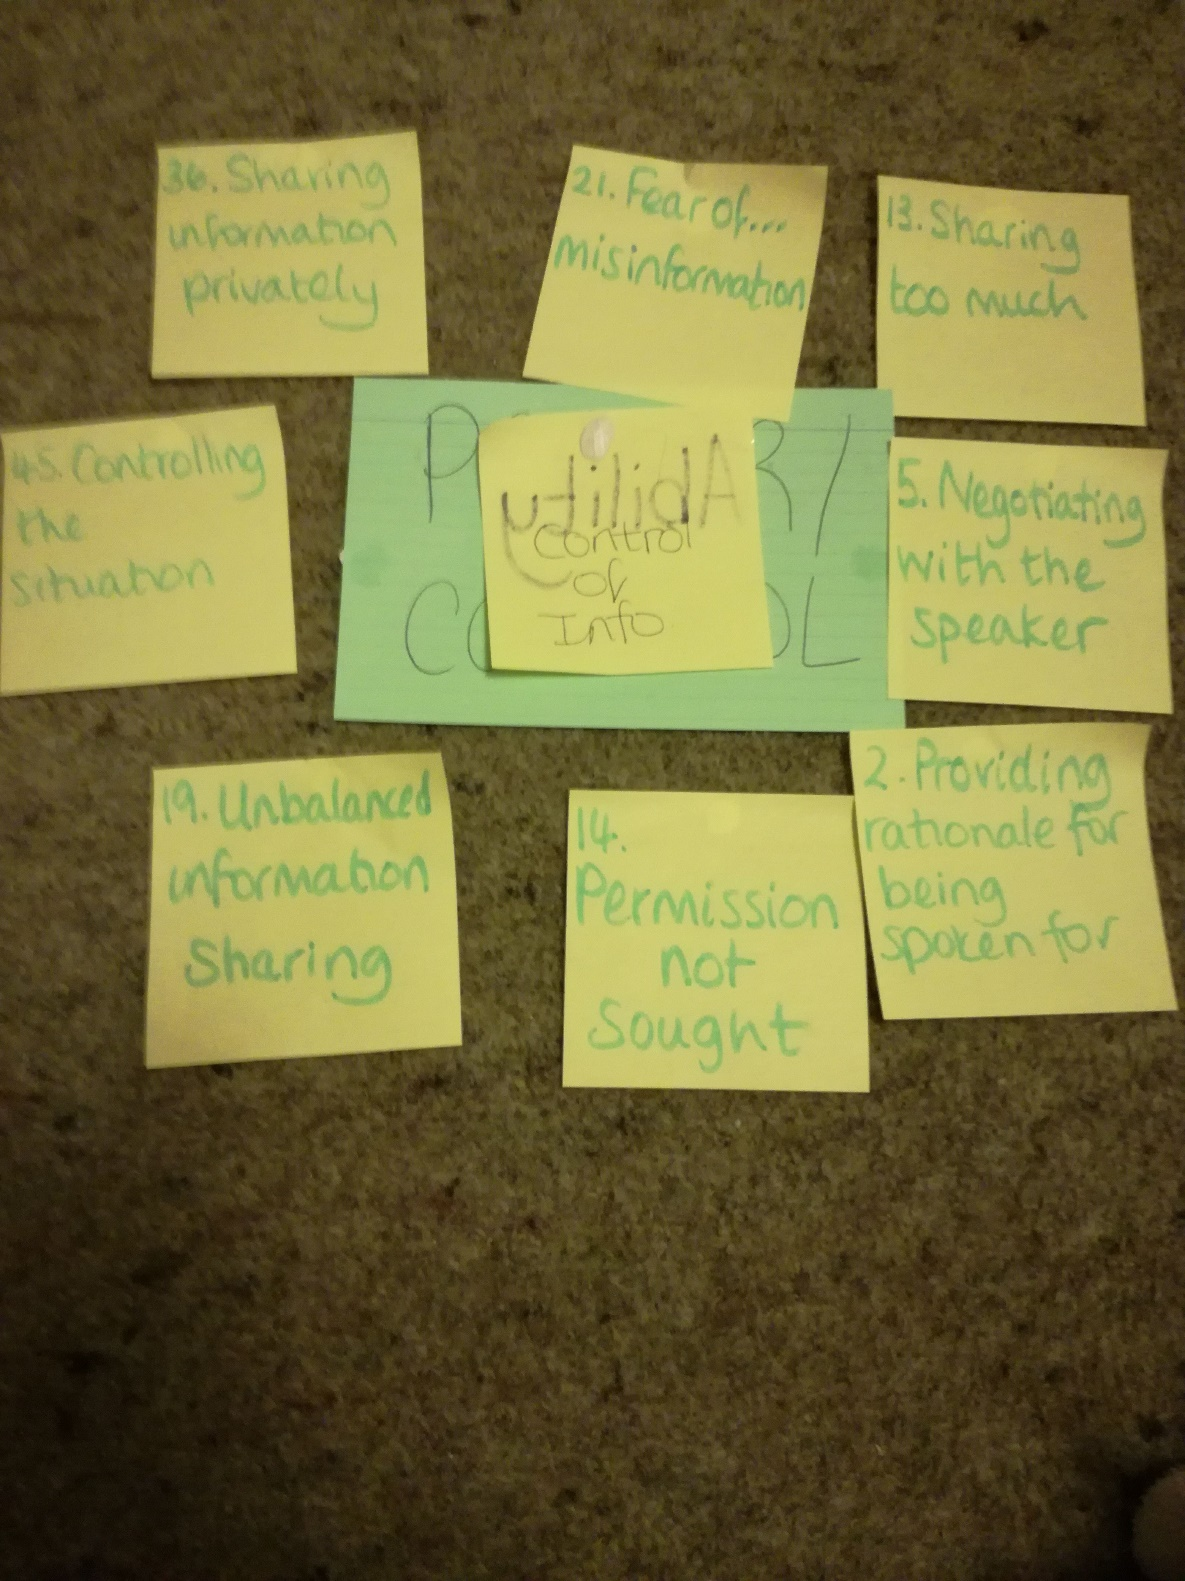 36. Sharing
information
privately
21. Fear of...
misinformation
13. Sharing
too much
45. Controlling
the
situation
Control
of
Info
5. Negotiating
with the
speaker
19. Unbalanced
information
Sharing
14.
Permission
not
Sought
2. Providing
rationale for
being
spoken for